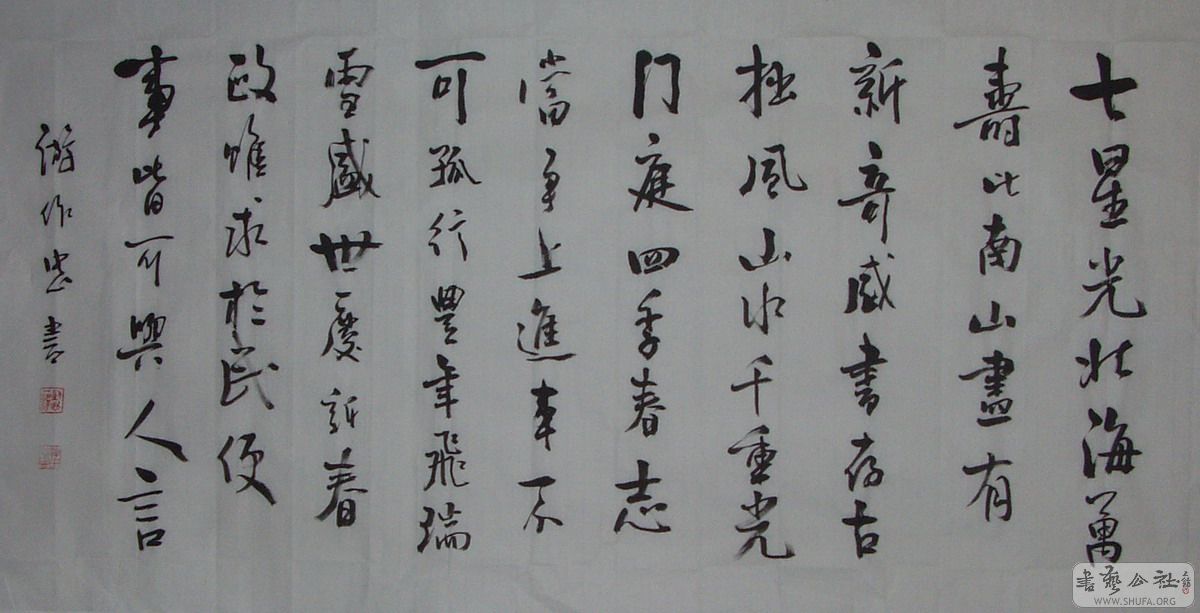 七星光北海萬
壽比南山畫有
新奇感書存古
拙風山水千重光
门庭四季春志
當爭上進事不
可孤行豐年飛瑞
雪盛世慶新春
政惟求於民便
事皆可與人言
作書
書藝公社
WWW.SHUFA.ORG